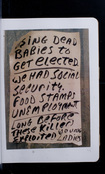 SING DEAD
BABIES TO
GET ELECTED
WE HAD SOCIAL
SECURITY.
FOOD STAMPS
UNEMPLOYMENT
LONG BEFORE
THESE KILLED
EXPLOITED YOUNG
LADIES